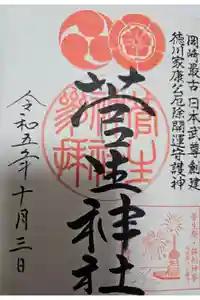 岡崎最古 日本武尊創建
徳川家康公厄除開運守護神
菅生神社
令和五年十月三日